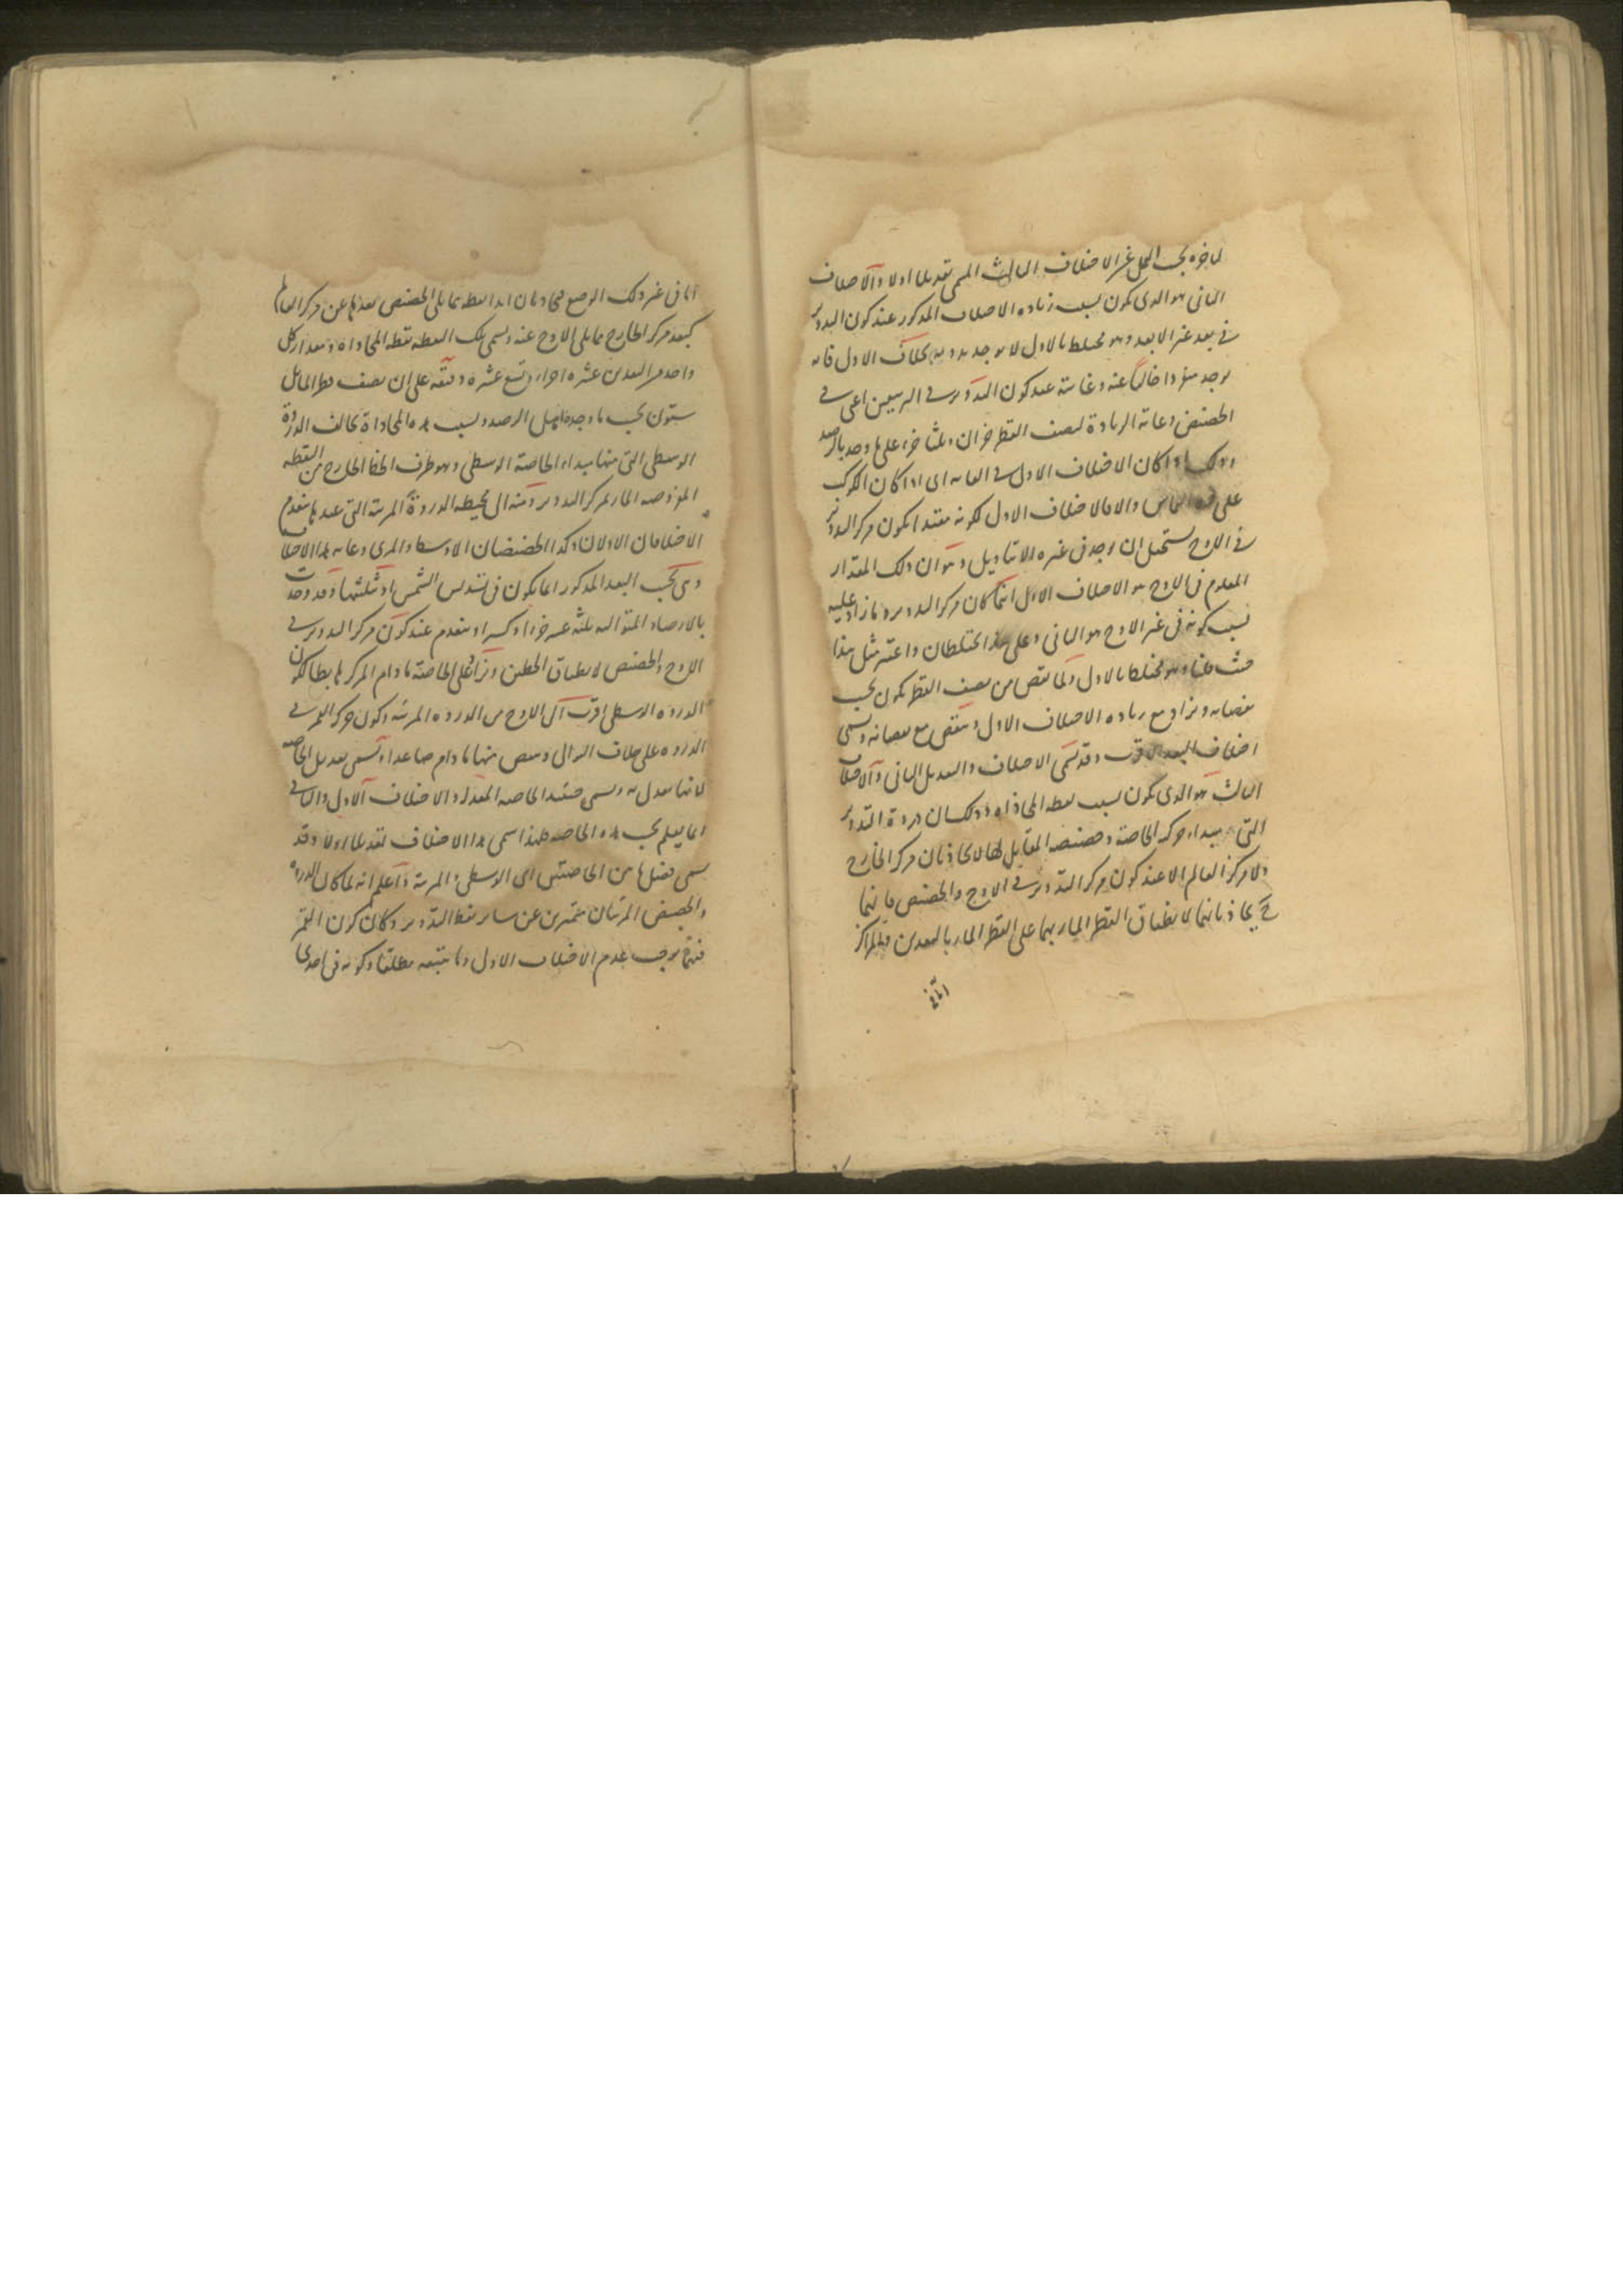 لماخره بحسب العمل غير الاختلاف الثالث المسمى تعديلا اولا والاختلاف
الثانى هو الذى يكون بسبب زياده الاختلاف المذكور عند كون التدوير
فى بعد غير الابعد وهو مختلط بالاول لا يوجد بدونه بخلاف الاول فانه
يوجد مفردا خاليا عنه وغايته عند كون التدوير فى التربيعين اعنى فى
الحضيض وغاية الزيادة لنصف القطر جزان وثلثا جزء على ما وجد بالرصد
وذلك اذا كان الاختلاف الاول فى الغايه اى اذا كان الكوكب
على التماس والا فالاختلاف الاول لكونه مقيدا بكون مركز التدوير
فى الاوج يستحيل ان يوجد فى غيره الا بتاويل وهو ان ذلك المقدار
المعلوم فى الاوج هو الاختلاف الاول اينما كان مركز التدوير وما زاد عليه
بسبب كونه فى غير الاوج هو الثانى وعلى هذا يختلطان واعتبر مثل هذا
حيث قلنا وهو مختلط بالاول ولما نقص من نصف القطر يكون بحسب
نقصانه ويزاد مع زياده الاختلاف الاول وينقص مع نقصانه ويسمى
اختلاف البعد الاقرب وقد يسمى الاختلاف والتعديل الثانى والاختلاف
الثالث هو الذى يكون بسبب نقطه المحاذاه وذلك ان ذروة التدوير
التى مبداء حركة الخاصة وحضيضه المقابل لها لا يحاذيان مركز الخارج
ولا مركز العالم الا عند كون مركز التدوير فى الاوج والحضيض فانهما
ح يحاذيانهما لانطباق القطر المار بهما على القطر المار بالبعدين والمراكز
اما فى
اما فى غير ذلك الوضع فيحاذيان ابدا نقطه مما يلى الحضيض بعدها عن مركز العالم
كبعد مركز الخارج مما يلى الاوج عنه ويسمى تلك النقطه نقطه المحاذاه ومقدار كل
واحد من البعدين عشره اجزاء وتسع عشره دقيقه على ان نصف قطر المائل
ستون بحسب ما وجده اهل الرصد وبسبب هذه المحاذاة يخالف الذروة
الوسطى التى منها مبداء الخاصة الوسطى وهو طرف الخط الخارج من النقطه
المفروضه المار بمركز التدوير ومنه الى محيطه الذروة المرئية التى عندها ينعدم
الاختلافان الاولان وكذا الحضيضان الاوسط والمرئى وغايه هذا الاختلاف
وهى بحسب البعد المذكور انما يكون فى تسديس الشمس او تثليثها وقد وجدت
بالارصاد المتواليه ثلثه عشر جزءا وكسرا وينعدم عند كون مركز التدوير فى
الاوج والحضيض لانطباق الخطين ويزاد على الخاصة ما دام المركز هابطا لكون
الذروه الوسطى اقرب الى الاوج من الذروه المرئيه وكون حركة القمر فى
الذروه على خلاف التوالى وينقص منها ما دام صاعدا ويسمى تعديل الخاصه
لانها تعدل به ويسمى حينئذ الخاصه المعدله والاختلاف الاول والثانى
انما يعلم بحسب هذه الخاصه فلهذا سمى هذا الاختلاف تعديلا اولا وقد
يسمى فضل ما بين الخاصتين اى الوسطى والمرئية واعلم انه لما كان الذروه
والحضيض المرئيان متميزين عن سائر نقط التدوير وكان كون القمر
فيهما يوجب عدم الاختلاف الاول وما يتبعه مطلقا وكونه فى احدى